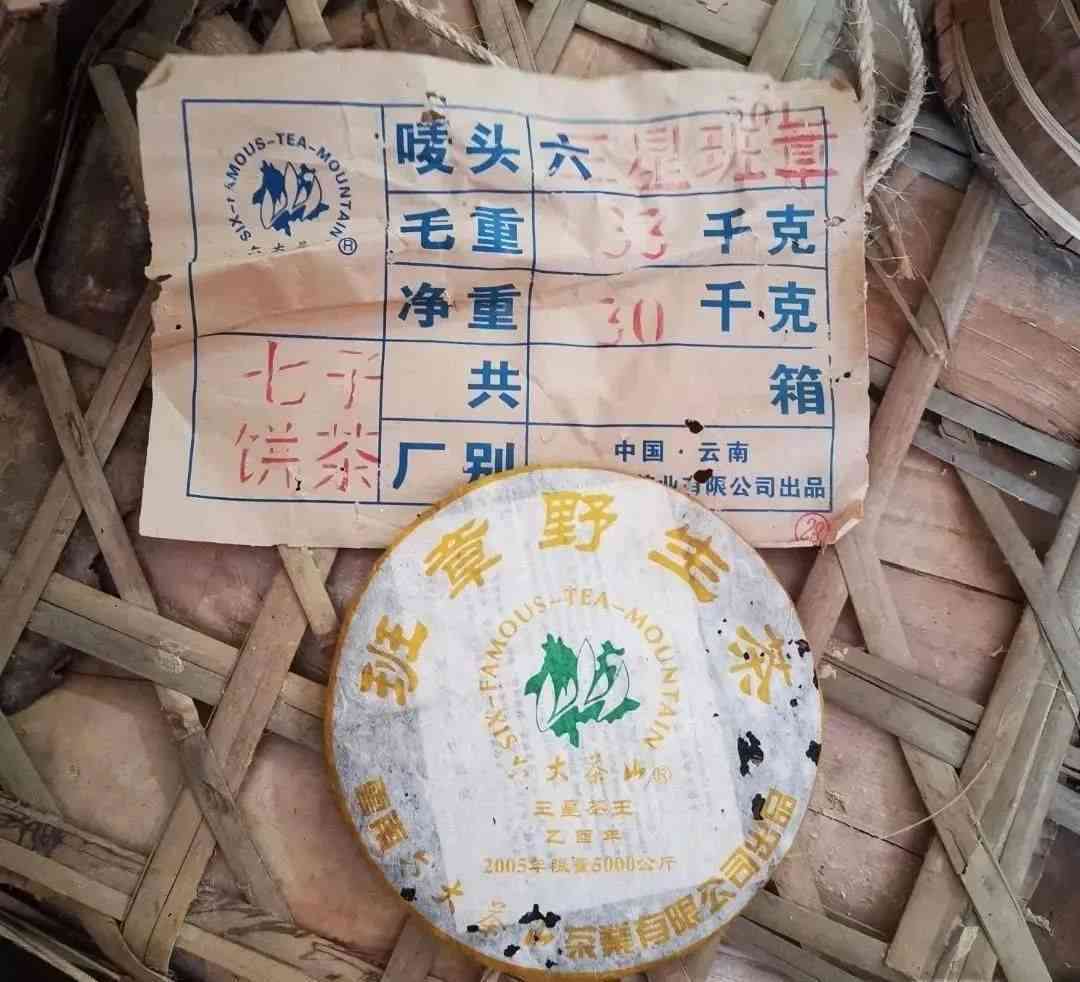 SIX-FAMOUS-TEA-MOUNTAIN
®
唛头 六 三星班章
501
毛重 33 千克
净重 30 千克
七子 共 箱
饼茶 厂别 中国·云南
业有限公司出品
班章野生茶
SIX-FAMOUS-TEA-MOUNTAIN
六大茶山®
三星茶王
乙酉年
2005年限量5000公斤
雲南六大茶山茶業有限公司出品